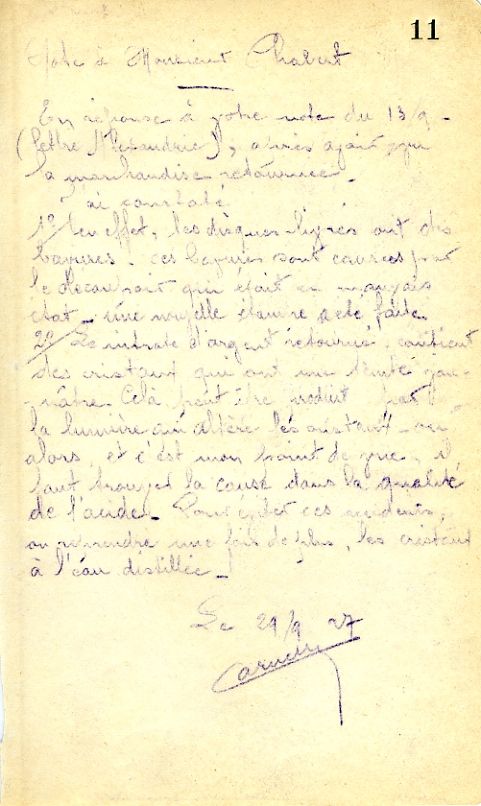 11
Note à Monsieur Chabert
En réponse à votre note du 13/9 -
(lettre Alexandrie), après avoir vu
la marchandise retournée.
J'ai constaté
1º/ En effet, les disques livrés ont des
bavures - ces bavures sont causées par
le découpoir qui était en mauvais
état - une nouvelle étampe a été faite
2º/ Le nitrate d'argent retourné, contient
des cristaux qui ont une teinte jau-
-nâtre. Celà peut être produit par
la lumière qui altère les cristaux - ou
alors, et c'est mon point de vue, il
faut trouver la cause dans la qualité
de l'acide - Pour éviter ces accidents,
on reprendre une fois de plus, les cristaux
à l'eau distillée -
Le 29/9 27